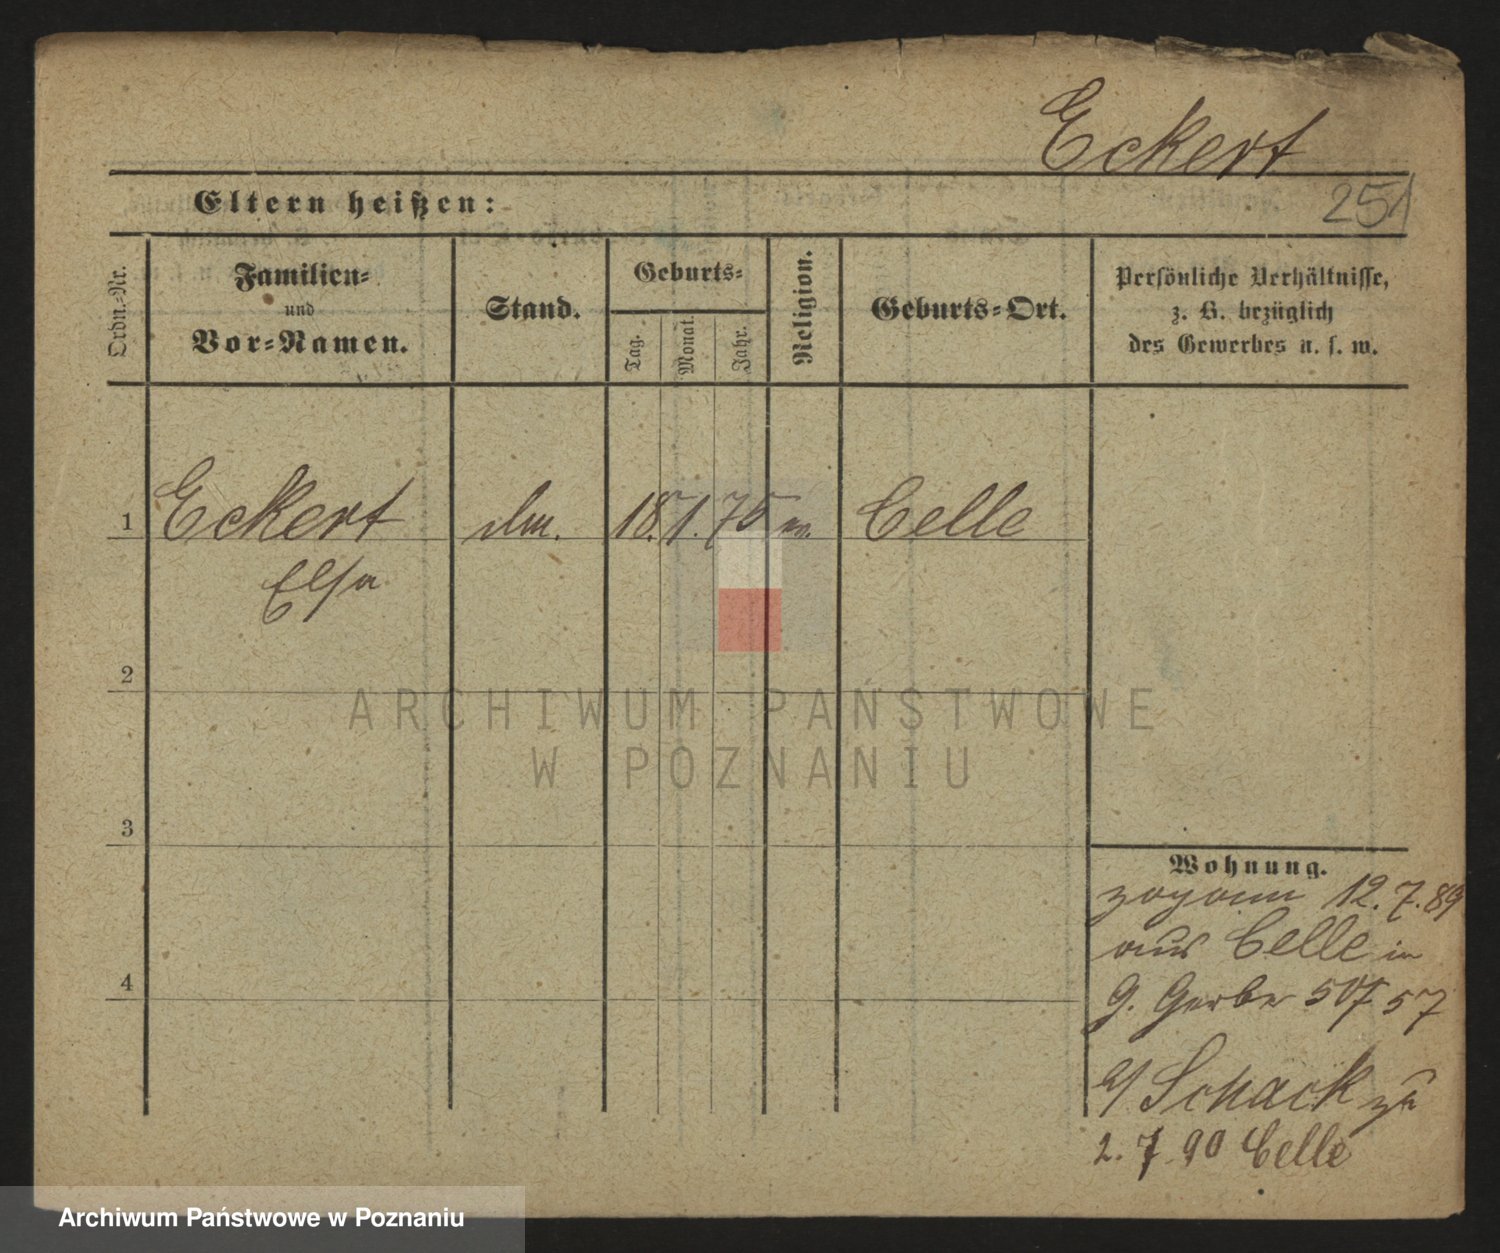 Eckert
251
Eltern heißen:
Ordn.-Nr.
Familien-
und
Vor-Namen.
Stand.
Geburts-
Tag.
Monat.
Jahr.
Religion.
Geburts-Ort.
Persönliche Verhältnisse,
z. B. bezüglich
des Gewerbes u. s. w.
1 Eckert 18. 1. 75 Celle
Elsa
2
ARCHIWUM PAŃSTWOWE
W POZNANIU
3
Wohnung.
12. 7. 89
aus Celle in
G. Gerber 57
Schack
2. 7. 90 Celle
4
Archiwum Państwowe w Poznaniu